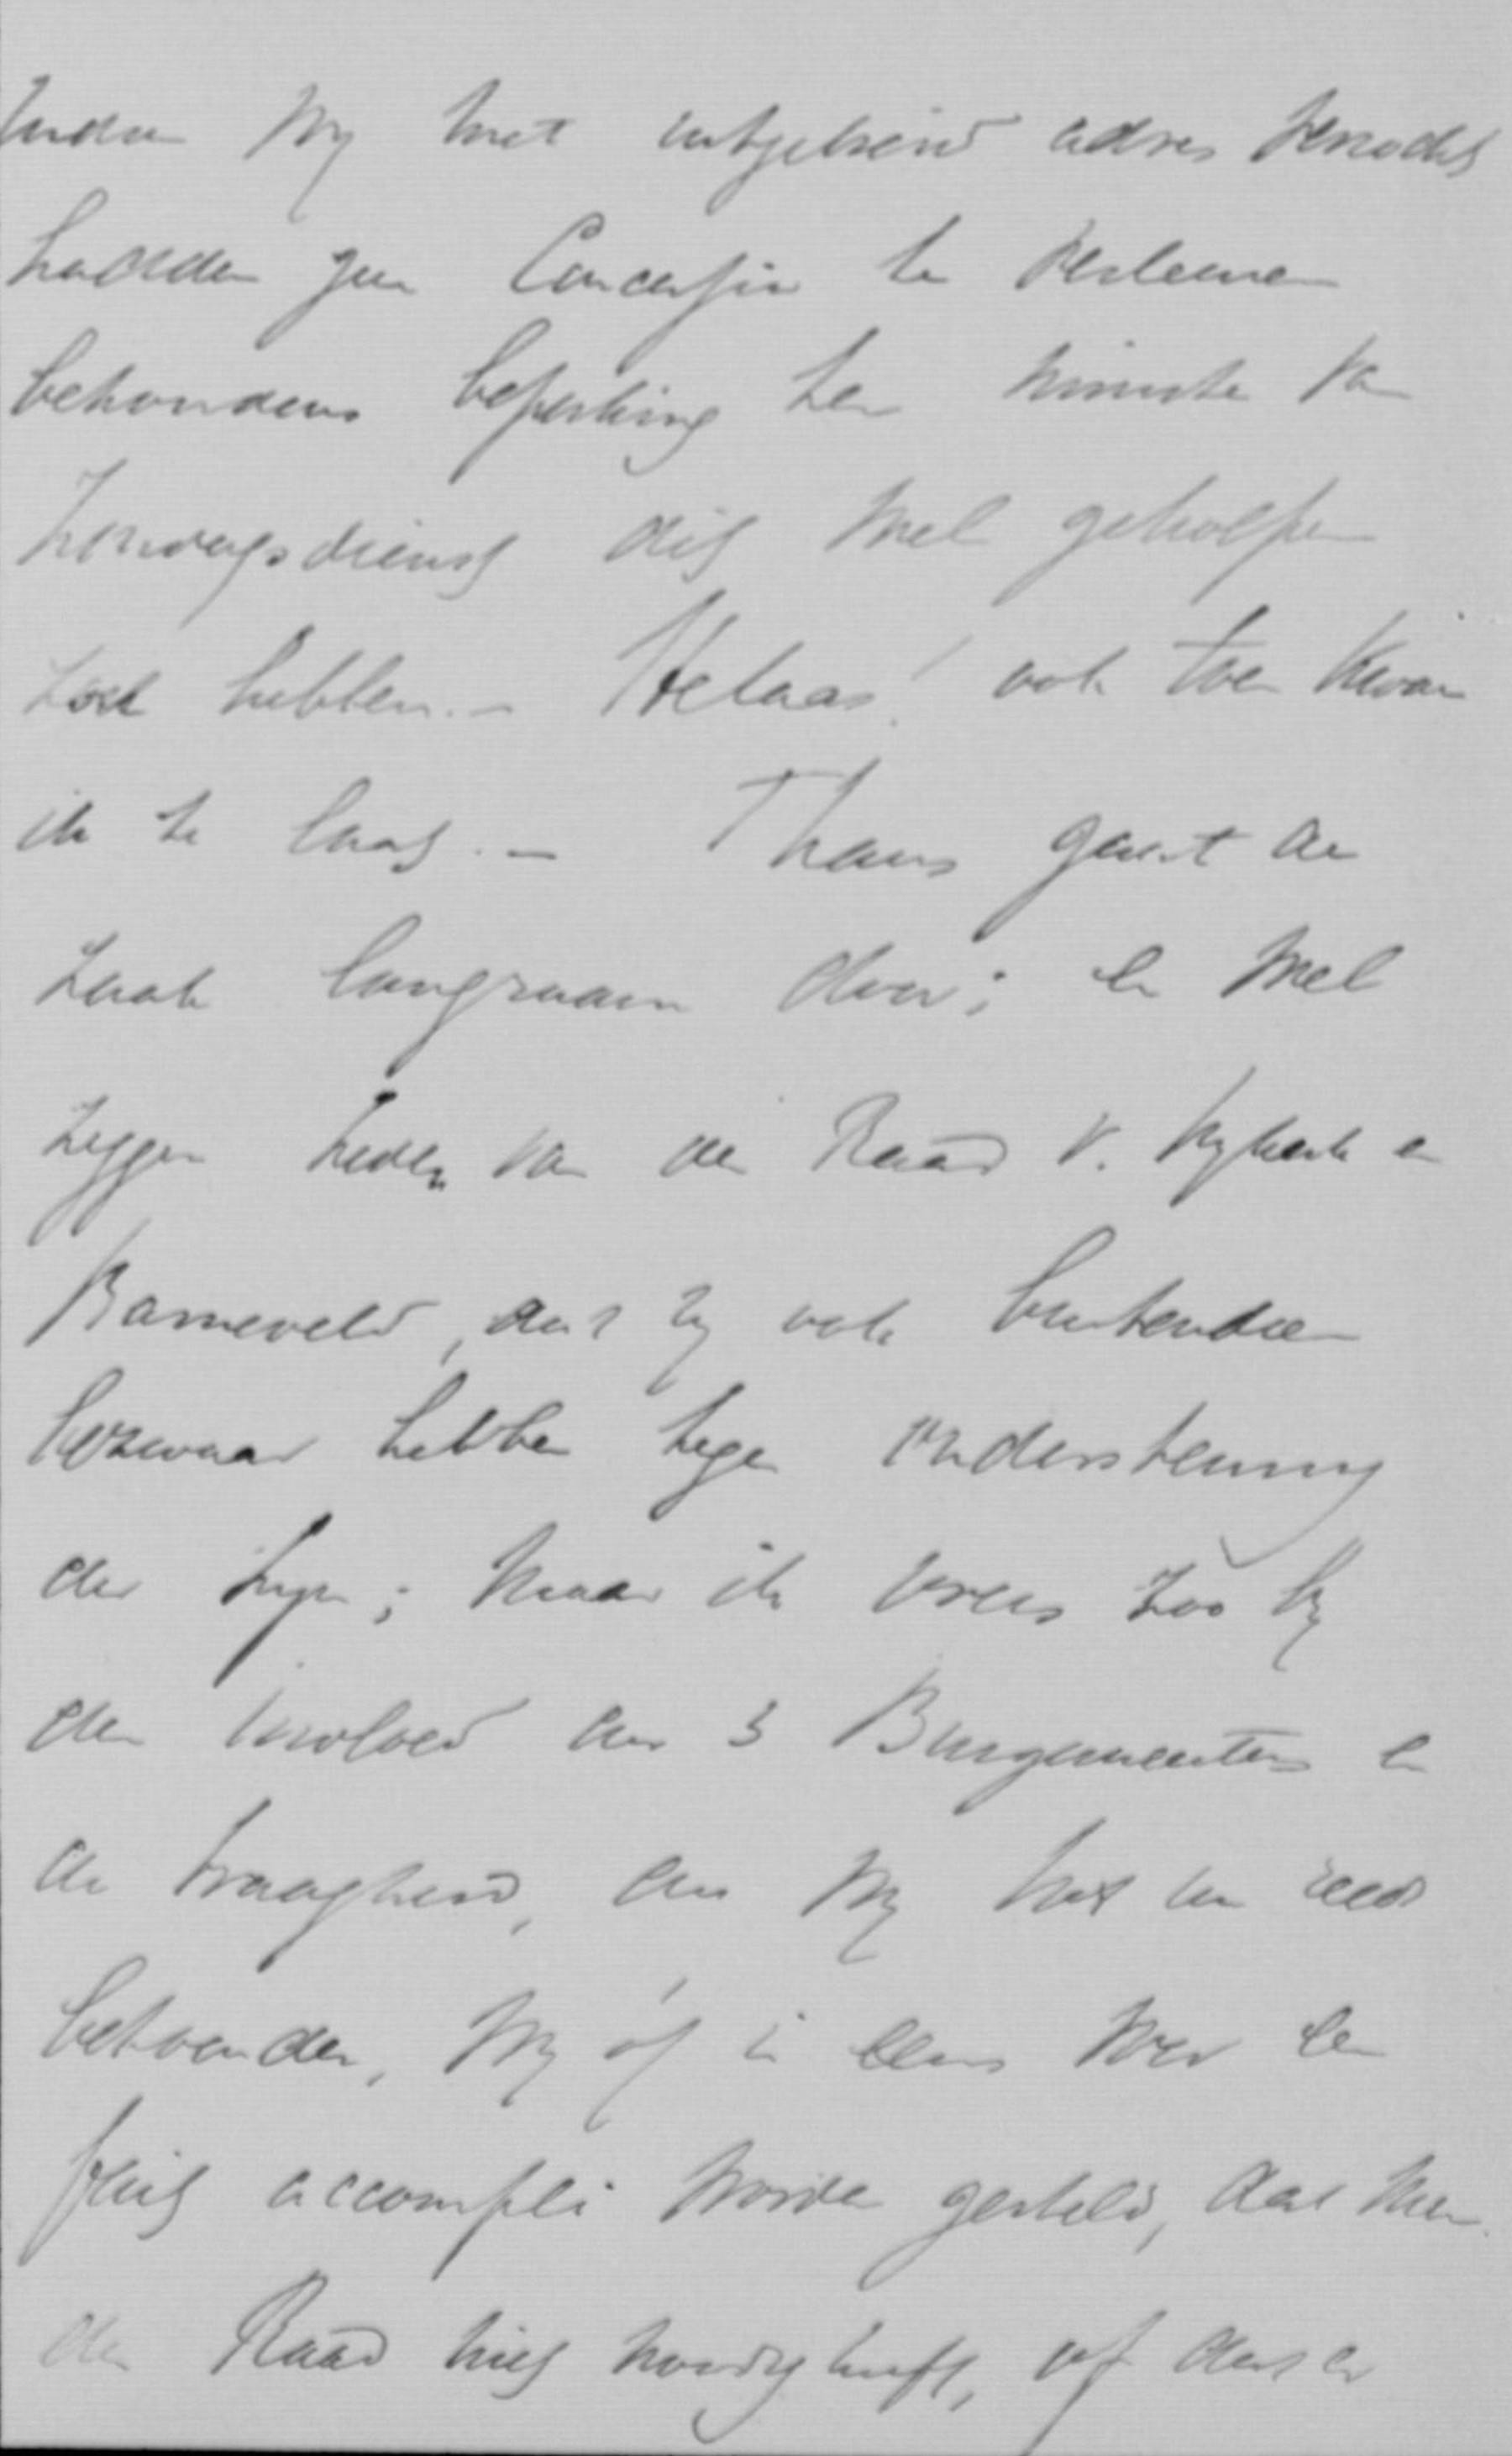 Indien wij met uitgebreid adres verzocht
hadden geen Concessie te verleenen
behoudens beperking ten minste van
Zondagsdienst dit wel geholpen
zou hebben. – Helaas! ook toen kwam
ik te laat. – Thans gaat de
zaak langzaam door; en wel
zeggen leden van de Raad v. Nijkerk en
Barneveld, dat zij ook buitendien
bezwaar hebben tegen ondersteuning
der lijn; maar ik vrees zoo bij
den invloed der 3 Burgemeesters en
de traagheid, die wij tot nu reeds
betoonden, wij óf in eens voor een
fait accompli worden gesteld, dat men
den Raad niet noodig heeft, of dat er